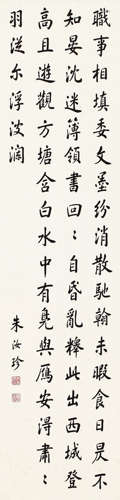 職事相填委文墨紛消散馳翰未暇食日昃不
知晏沈迷簿領書回〻自昏亂釋此出西城登
高且遊觀方塘含白水中有鳧與鴈安得肅〻
羽從尔浮波瀾
朱汝珍